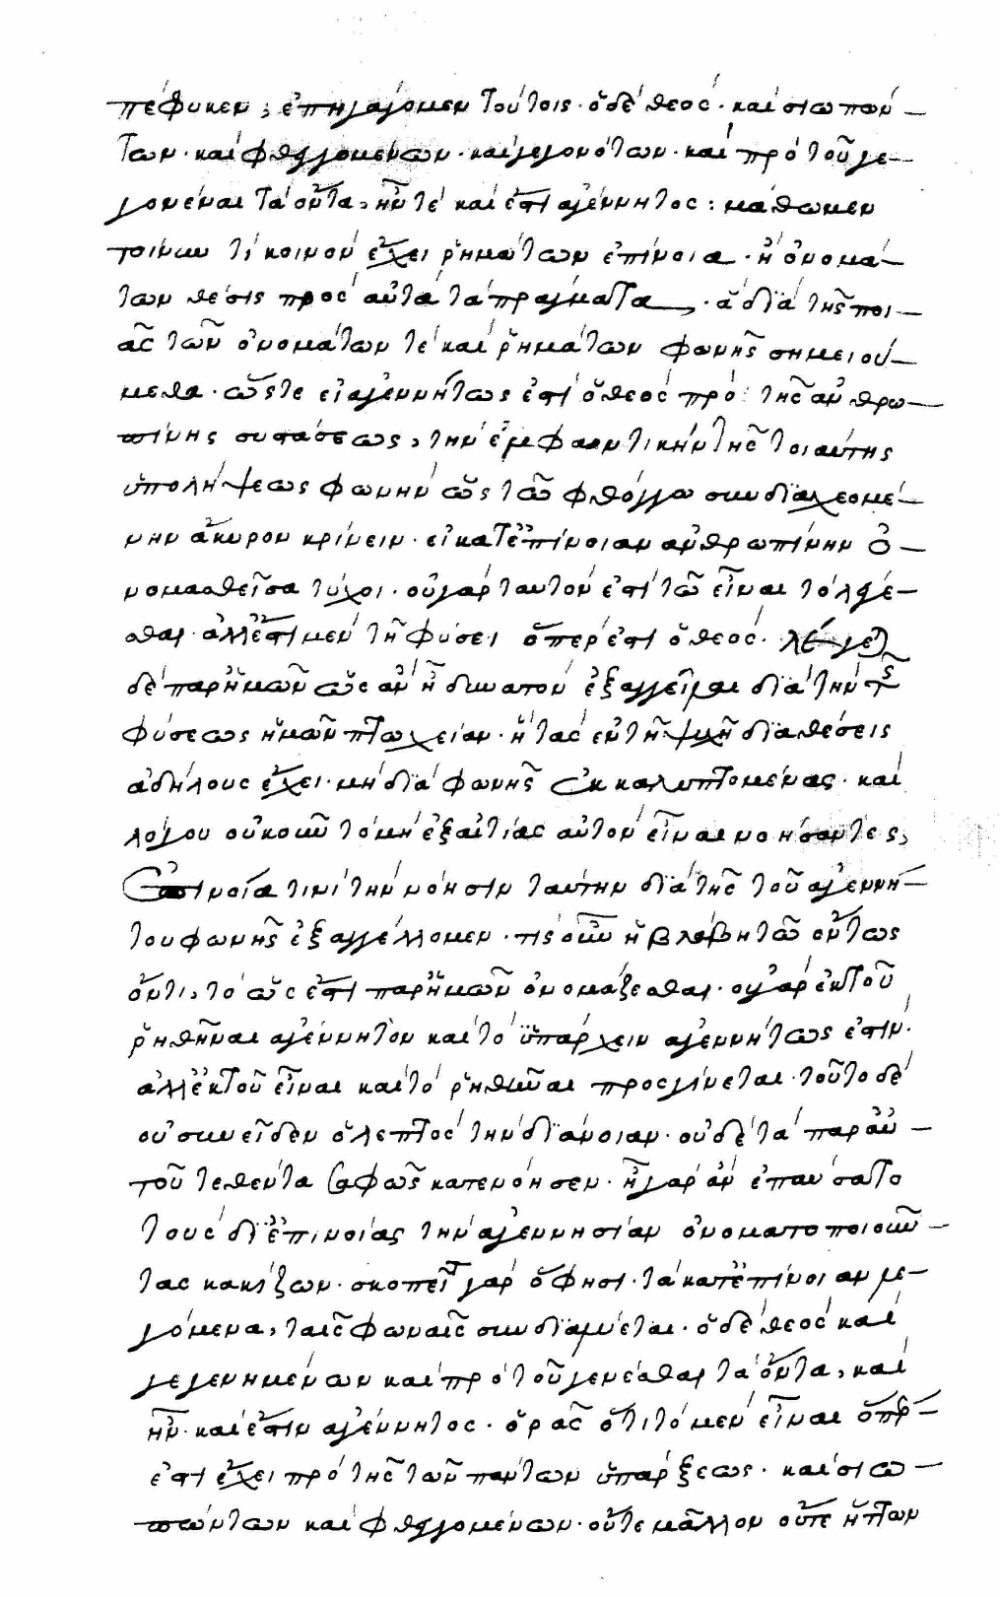 πέφυκεν, ἐπηγάγομεν τούτοις· ὁ δὲ θεὸς· καὶ σιωπών-
των· καὶ φθεγγομένων· καὶ γεγονότων· καὶ πρὸ τοῦ γε-
γονέναι τὰ ὄντα, ἦν τὲ καὶ ἐστὶ ἀγέννητος: μάθωμεν
τοίνυν τί κοινὸν ἔχει ῥημάτων ἐπίνοια· ἢ ὀνομά-
των θέσις πρὸς αὐτὰ τὰ πράγματα, · ἃ διὰ τῆς ποι-
ᾶς τῶν ὀνομάτων τὲ καὶ ῥημάτων φωνῆς σημειού-
μεθα· ὥστε εἰ ἀγεννήτως ἐστὶ ὁ θεὸς πρὸ τῆς ἀνθρω-
πίνης συστάσεως, τὴν ἐμφαντικὴν τῆς τοιαύτης
ὑπολήψεως φωνὴν ὡς τῶ φθόγγω συνδιαχεομέ-
νην ἄκυρον κρίνειν· εἰ κατ ἐπίνοιαν ἀνθρωπίνην ὀ-
νομασθεῖσα τύχοι· οὐ γὰρ ταυτόν ἐστὶ τῶ εἶναι τὸ λέγε-
σθαι· ἀλλ ἐστὶ μὲν τῆ φύσει ὅπερ ἐστὶ ὁ θεὸς· λέγε
δὲ παρ ἡμῶν ὡς ἂν ἦ δυνατὸν ἐξαγγεῖλαι διὰ τὴν τῆς
φύσεως ἡμῶν πτωχείαν· ἢ τὰς ἐν τῆ ψυχῆ διαθέσεις
ἀδήλους ἔχει· μὴ διὰ φωνῆς ἐκκαλυπτομένας· καὶ
λόγου οὐκοῦν τὸ μὴ ἐξ αἰτίας αὐτὸν εἶναι νοήσαντες,
ἐπινοία τινὶ τὴν νόησιν ταύτην διὰ τῆς τοῦ ἀγεννή-
του φωνῆς ἐξαγγέλλομεν· τίς οὖν ἡ βλάβη τῶ ὄντως
ὄντι, τὸ ὡς ἐστὶ παρ ἡμῶν ὀνομάζεσθαι· οὐ γὰρ ἐκ τοῦ
ῥηθῆναι ἀγέννητον καὶ τὸ ὑπάρχειν ἀγεννήτως ἐστίν·
ἀλλ ἐκ τοῦ εἶναι καὶ τὸ ῥηθῆναι προσγίνεται· τοῦτο δὲ
οὐ συνεῖδεν ὁ λεπτὸς τὴν διάνοιαν· οὐδὲ τὰ παρ αὐ-
τοῦ τεθέντα σαφῶς κατενόησεν· ἦ γὰρ ἂν ἐπαύσατο
τοὺς δι ἐπινοίας τὴν ἀγεννησίαν ὀνοματοποιοῦν-
τας κακίζων· σκοπεῖτε γὰρ ὃ φησι· τὰ κατ ἐπίνοιαν λε-
γόμενα, ταῖς φωναῖς συνδιαλύεται· ὁ δὲ θεὸς καὶ
γεγενημένων καὶ πρὸ τοῦ γενέσθαι τὰ ὄντα, καὶ
ἦν· καὶ ἐστιν ἀγέννητος· ὁρᾶς ὅτι τὸ μὲν εἶναι ὅπερ
ἐστὶ ἔχει πρὸ τῆς τῶν πάντων ὑπάρξεως· καὶ σιω-
πώντων καὶ φθεγγομένων· οὔτε μᾶλλον οὔτε ἧττον